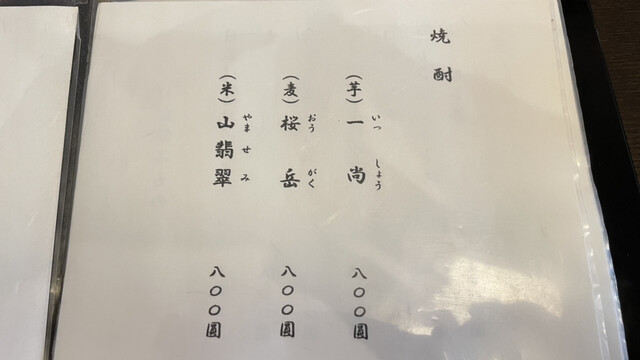 焼酎
（芋）一尚 八〇〇圓
いっしょう
（麦）桜岳 八〇〇圓
おうがく
（米）山翡翠 八〇〇圓
やませみ